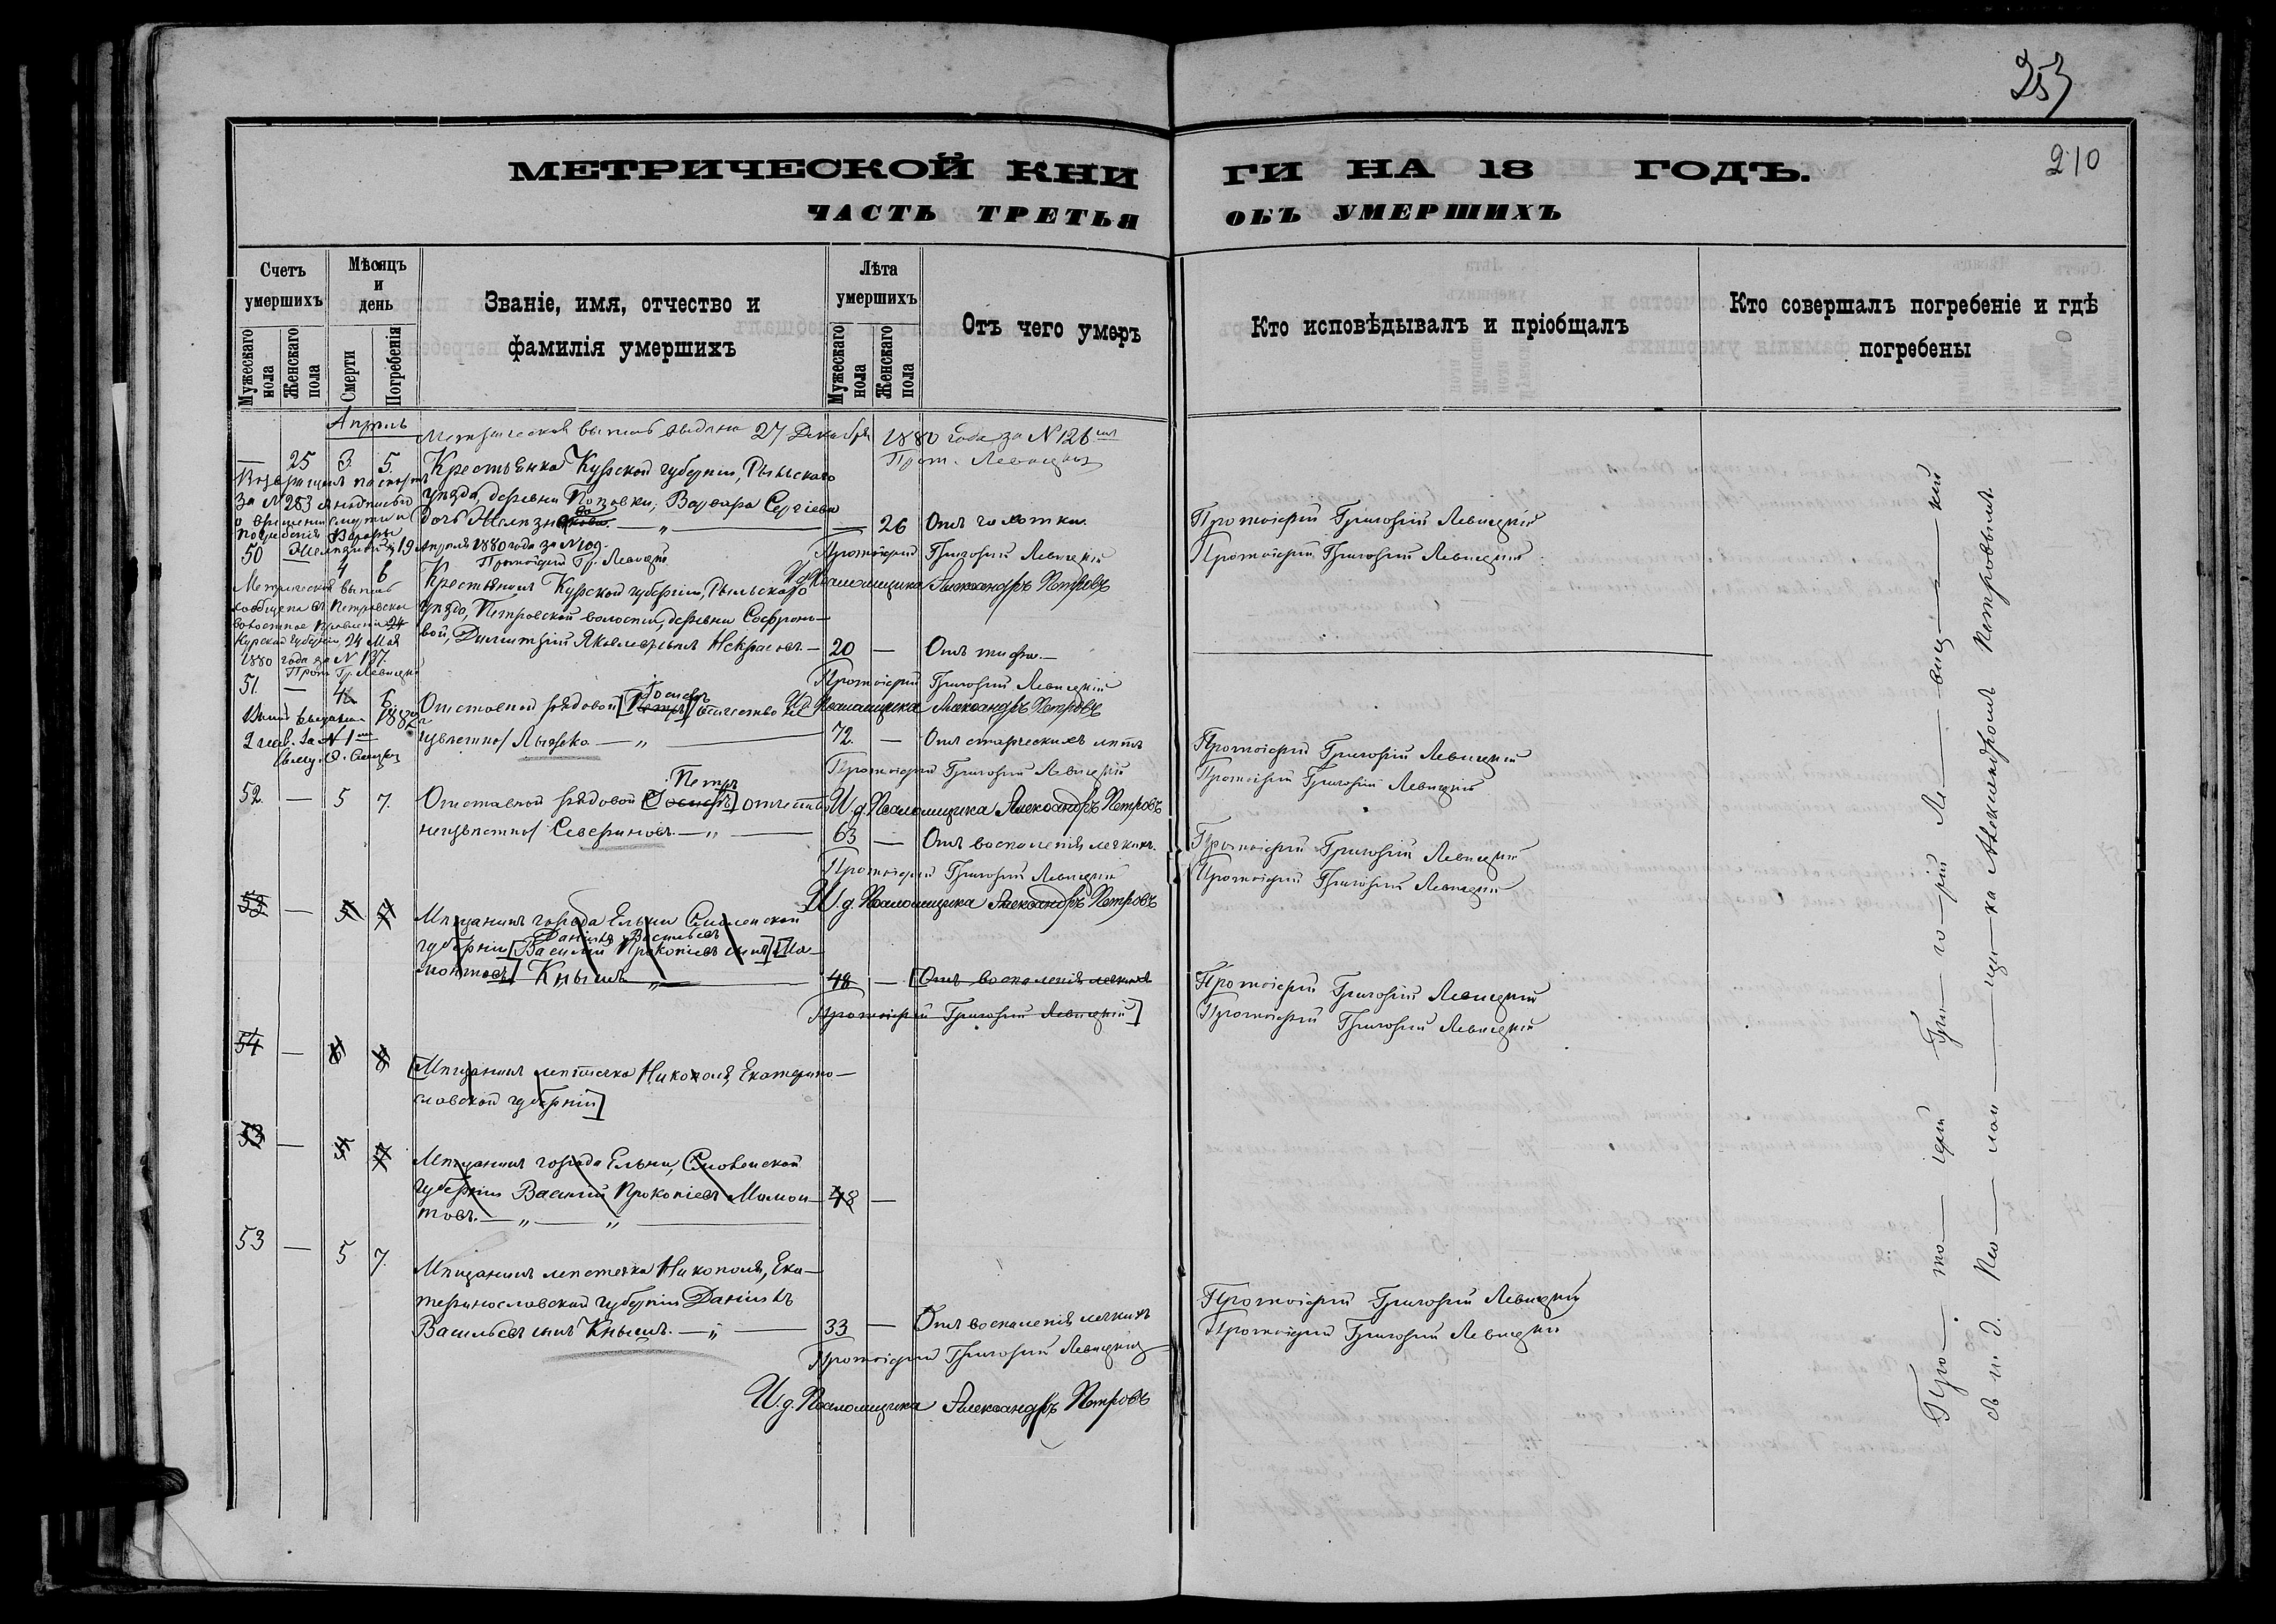 253
210
МЕТРИЧЕСКОЙ КНИГИ НА 18 ГОДЪ.
ЧАСТЬ ТРЕТЬЯ ОБЪ УМЕРШИХЪ
Счетъ умершихъ
Мужескаго пола
Женскаго пола
Мѣсяцъ и день
Смерти
Погребенія
Званіе, имя, отчество и
фамилія умершихъ
Лѣта умершихъ
Мужескаго пола
Женскаго пола
Отъ чего умеръ
Кто исповѣдывалъ и пріобщалъ
Кто совершалъ погребеніе и гдѣ
погребены
Апрѣль
Метрическая выпись выдана 27 Декабря 1880 года за N 126
Прот. Левицкій
— 25 3. 5. Крестьянка Курской губерніи, Рыльскаго
уѣзда, деревни Поповки, Варвара Сергіева
дочь — 26 Отъ чахотки. Протоіерей Григорій Левицкій
Возвращенъ паспортъ
за N 253 съ надписью
о времени смерти и
погребенія Варвары
19 Апрѣля 1880 года за N 109.
Протоіерей Гр. Левицкій
Протоіерей Григорій Левицкій Протоіерей Григорій Левицкій
И. д. Псаломщика Александръ Петровъ
50 — 4 6 Крестьянинъ Курской губерніи, Рыльскаго
уѣзда, Петровской волости, деревни Софроно-
вой, Димитрій Яковлевъ Некрасовъ — 20 — Отъ тифа. —
Метрическая выпись
сообщена въ Петровское
волостное правленіе
Курской губерніи 24 Мая
1880 года за N 137.
Прот. Гр. Левицкій
Протоіерей Григорій Левицкій
И. д. Псаломщика Александръ Петровъ
51. — 4 6. Отставной рядовой [Петръ] Іосифъ (отчество не
извѣстно) — „ — 72. — Отъ старческихъ лѣтъ Протоіерей Григорій Левицкій
1882
2 за N 1
Протоіерей Григорій Левицкій Протоіерей Григорій Левицкій
И. д. Псаломщика Александръ Петровъ
52. — 5 7. Отставной рядовой [Іосифъ] Петръ (отчество
неизвѣстно) Севериновъ. — „ — 63 — Отъ воспаленія легкихъ. Протоіерей Григорій Левицкій
Протоіерей Григорій Левицкій Протоіерей Григорій Левицкій
И. д. Псаломщика Александръ Петровъ
53 — 5 7 Мѣщанинъ города Ельни Смоленской
Даніилъ Васильевъ
губерніи [Василій Прокопіевъ сынъ] [Ма-
монтовъ] Кнышъ „ — 48 — [Отъ воспаленія легкихъ Протоіерей Григорій Левицкій
Протоіерей Григорій Левицкій] Протоіерей Григорій Левицкій
54 — 6 8 [Мѣщанинъ мѣстечка Никополя, Екатерино-
славской губерніи]
53 — 5 7 Мѣщанинъ города Ельни, Смоленской
губерніи Василій Прокопіевъ Мамон- 48 —
товъ. — „ — „ —
53 — 5 7. Мѣщанинъ мѣстечка Никополя, Ека-
теринославской губерніи Даніилъ
Васильевъ сынъ Кнышъ. — „ — 33 — Отъ воспаленія легкихъ Протоіерей Григорій Левицкій
Протоіерей Григорій Левицкій Протоіерей Григорій Левицкій
И. д. Псаломщика Александръ Петровъ
Про — то — іерей Гри — го — рій Ле — виц — кій
съ и. д. Пса — лом — щи — ка Александромъ Петровымъ.